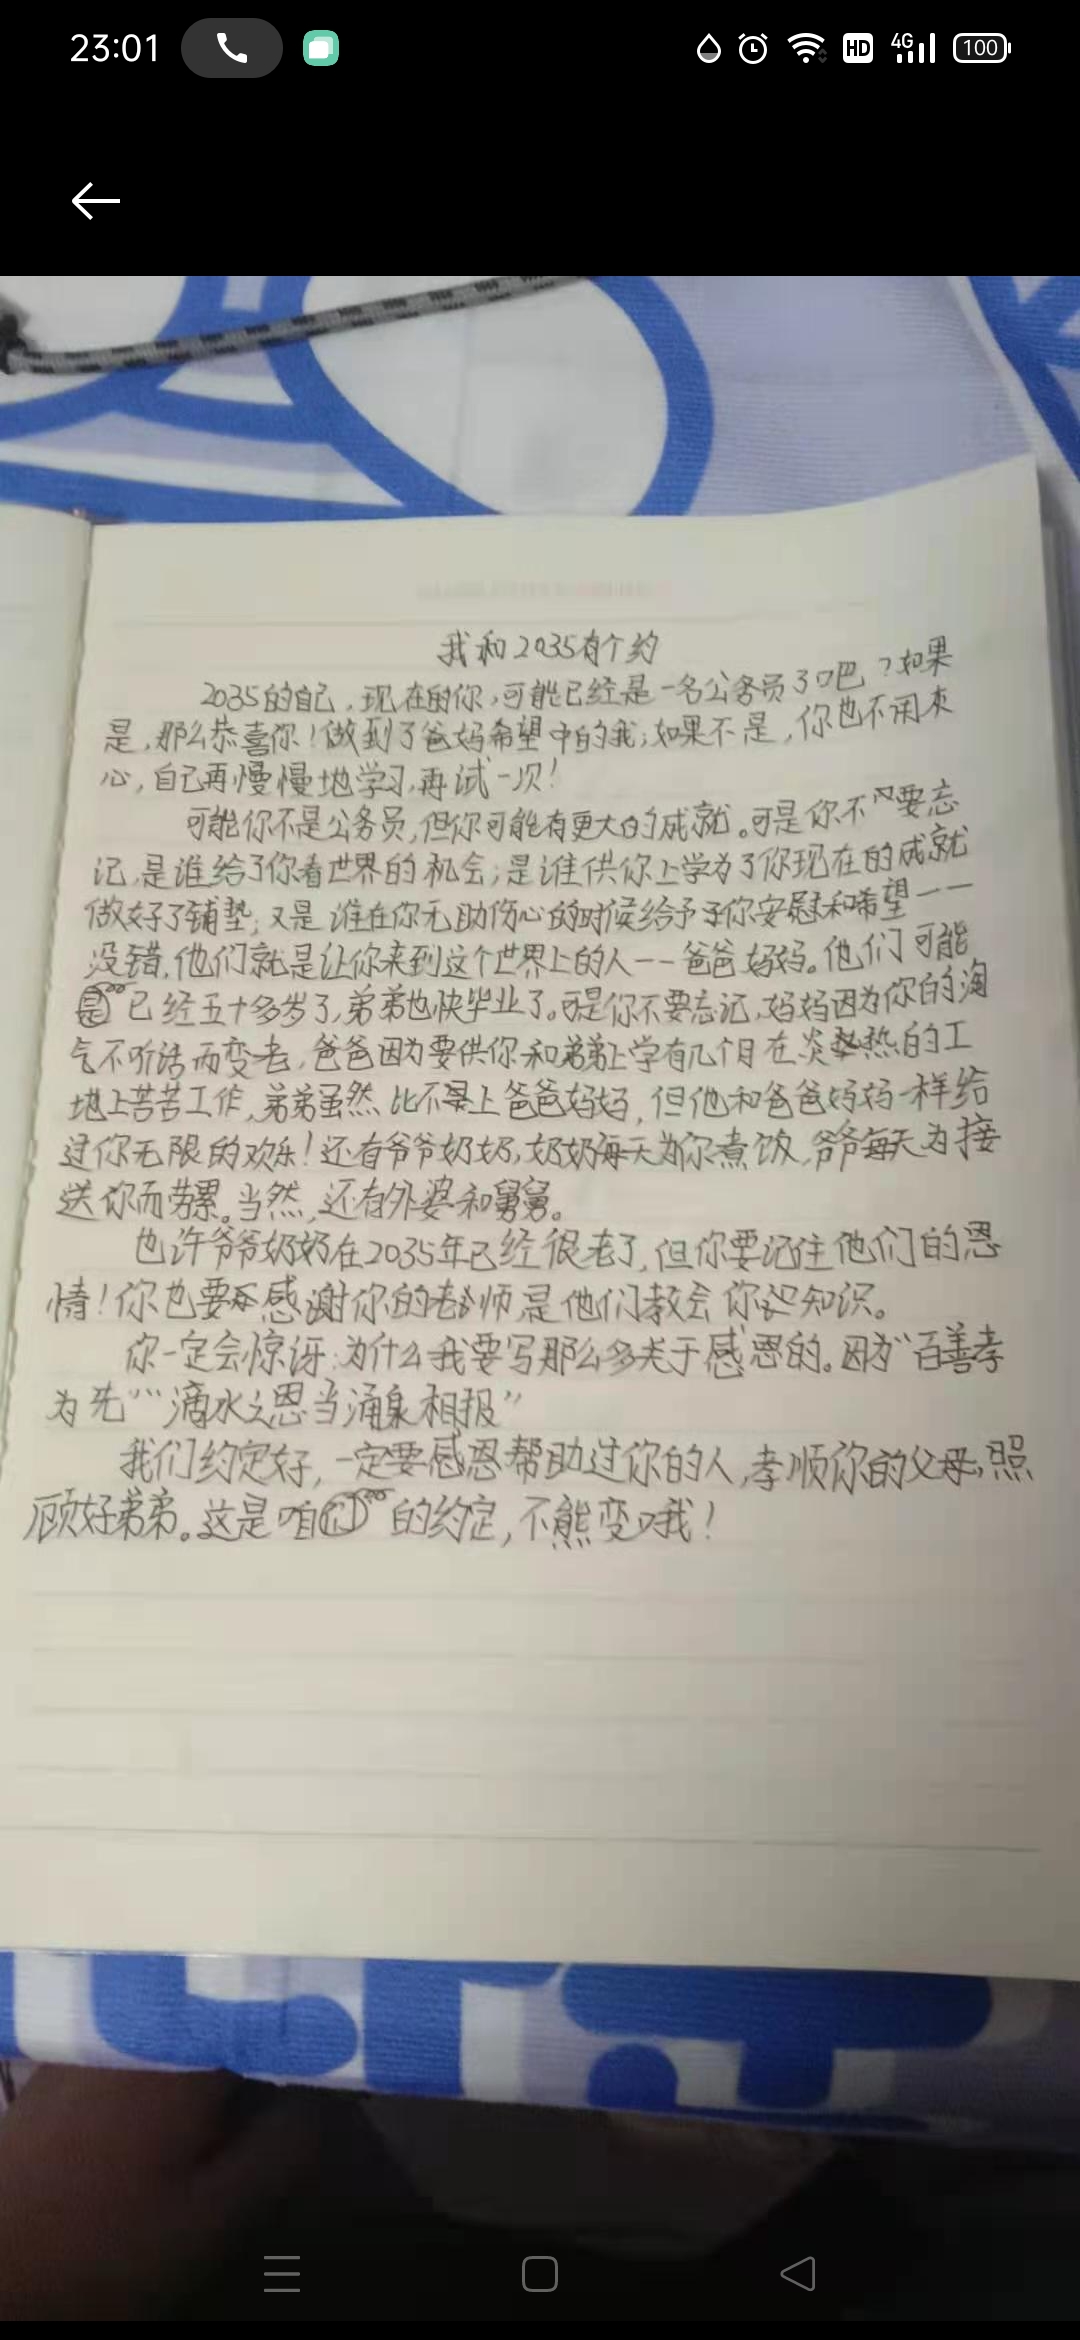 23:01
HD 4G 100
我和2035有个约
2035的自己,现在的你,可能已经是一名公务员了吧?如果
是,那么恭喜你!做到了爸妈希望中的我;如果不是,你也不用灰
心,自己再慢慢地学习,再试一次!
可能你不是公务员,但你可能有更大的成就。可是你不要忘
记,是谁给了你看世界的机会;是谁供你上学为了你现在的成就
做好了铺垫;又是谁在你无助伤心的时候给予了你安慰和希望——
没错,他们就是让你来到这个世界上的人——爸爸妈妈。他们可能
已经五十多岁了,弟弟也快毕业了。可是你不要忘记,妈妈因为你的淘
气不听话而变老,爸爸因为要供你和弟弟上学有几个月在炎热的工
地上苦苦工作,弟弟虽然比不上爸爸妈妈,但他和爸爸妈妈一样给
过你无限的欢乐!还有爷爷奶奶,奶奶每天为你煮饭,爷爷每天为接
送你而劳累。当然,还有外婆和舅舅。
也许爷爷奶奶在2035年已经很老了,但你要记住他们的恩
情!你也要感谢你的老师,是他们教会你知识。
你一定会惊讶:为什么我要写那么多关于感恩的。因为“百善孝
为先”“滴水之恩当涌泉相报”
我们约定好,一定要感恩帮助过你的人,孝顺你的父母,照
顾好弟弟。这是咱的约定,不能变哦!